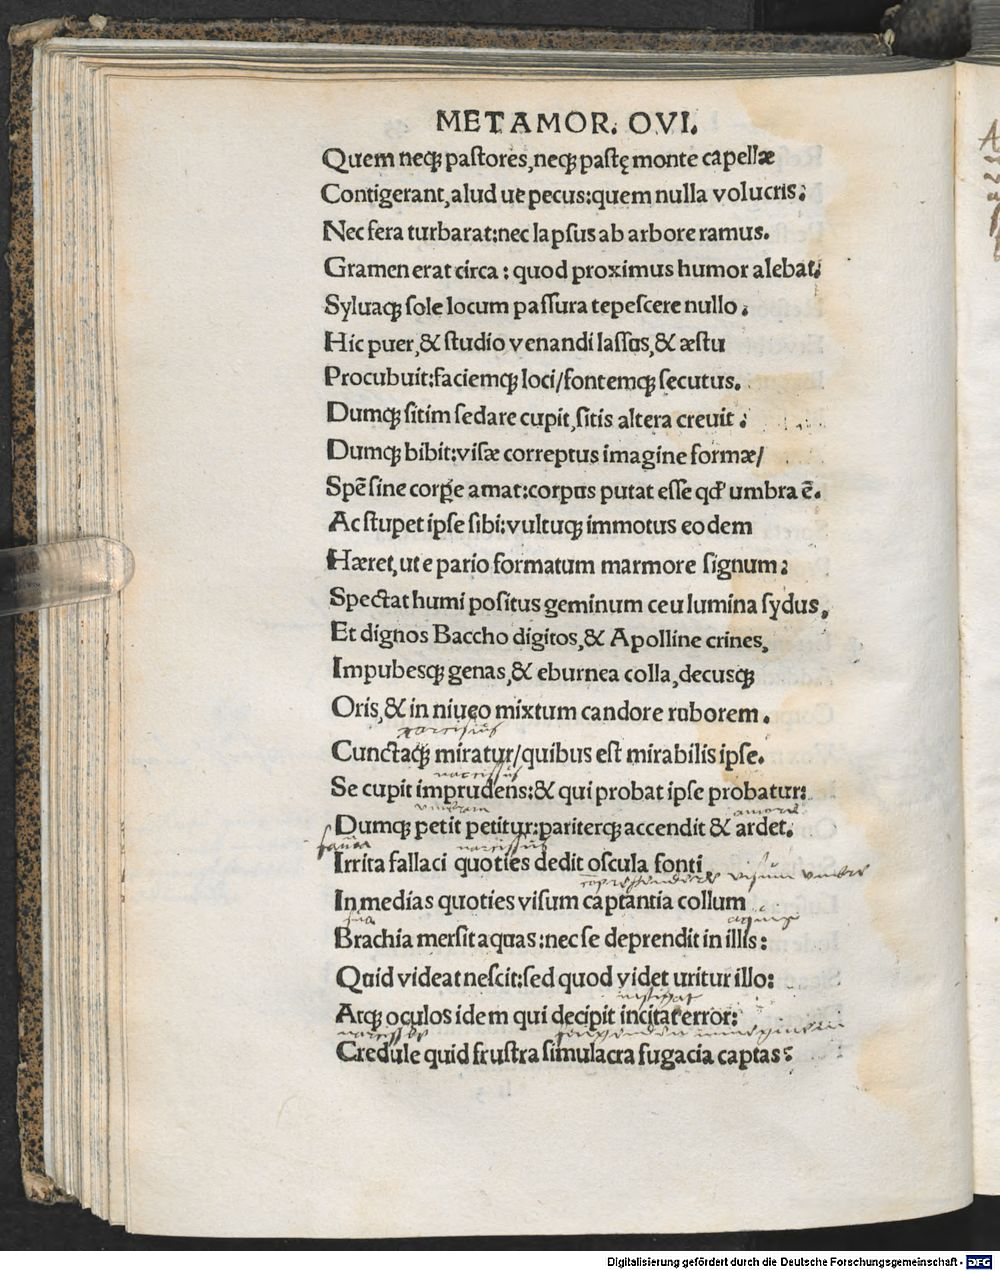 METAMOR. OVI.
Quem neqꝫ paſtores,neqꝫ paſtę monte capellæ
Contigerant,alud ue pecus:quem nulla volucris:
Nec fera turbarat:nec lapſus ab arbore ramus.
Gramen erat circa : quod proximus humor alebat:
Syluaqꝫ ſole locum paſſura tepeſcere nullo :
Hic puer,& ſtudio venandi laſſus,& æſtu
Procubuit:faciemqꝫ loci/fontemqꝫ ſecutus.
Dumqꝫ ſitim ſedare cupit,ſitis altera creuit :
Dumqꝫ bibit:viſæ correptus imagine formæ/
Spē ſine corꝑe amat:corpus putat eſſe qd' umbra ē.
Ac ſtupet ipſe ſibi:vultuqꝫ immotus eodem
Hæret,ut e pario formatum marmore ſignum:
Spectat humi poſitus geminum ceu lumina ſydus,
Et dignos Baccho digitos,& Apolline crines,
Impubesqꝫ genas,& eburnea colla,decusqꝫ
Oris,& in niueo mixtum candore ruborem .
narcisſus
Cunctaqꝫ miratur/quibus eſt mirabilis ipſe.
narciſſus
Se cupit imprudens:& qui probat ipſe probatur:
umbram amore
Dumqꝫ petit petitur:pariterqꝫ accendit & ardet.
narciſſus
Irrita fallaci quoties dedit oſcula fonti
viſum umbre
In medias quoties viſum captantia collum
ſua aquis
Brachia merſit aquas :nec ſe deprendit in illis :
Quid videat neſcit:ſed quod videt uritur illo:
inſtigat
Atqꝫ oculos idem qui decipit incitat error:
narciſſe
Credule quid fruſtra ſimulacra fugacia captas:
Digitalisierung gefördert durch die Deutsche Forschungsgemeinschaft - DFG